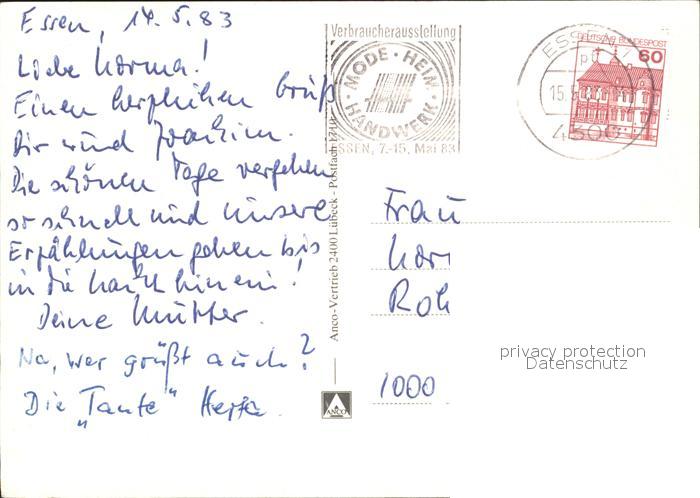 Essen, 14.5.83
Liebe Norma!
Einen herzlichen Gruß
Dir und Joachim.
Die schönen Tage vergehen
so schnell und unsere
Erzählungen gehen bis
in die Nacht hinein!
Deine Mutter.
Na, wer grüßt auch?
Die „Tante" Herta.
Verbraucherausstellung
MODE · HEIM · HANDWERK ·
ESSEN, 7.-15. Mai 83
ESSEN
15.
4300
DEUTSCHE BUNDESPOST
60
Anco-Vertrieb 2400 Lübeck - Postfach
ANCO
Frau
Nor
Roh
1000
privacy protection
Datenschutz